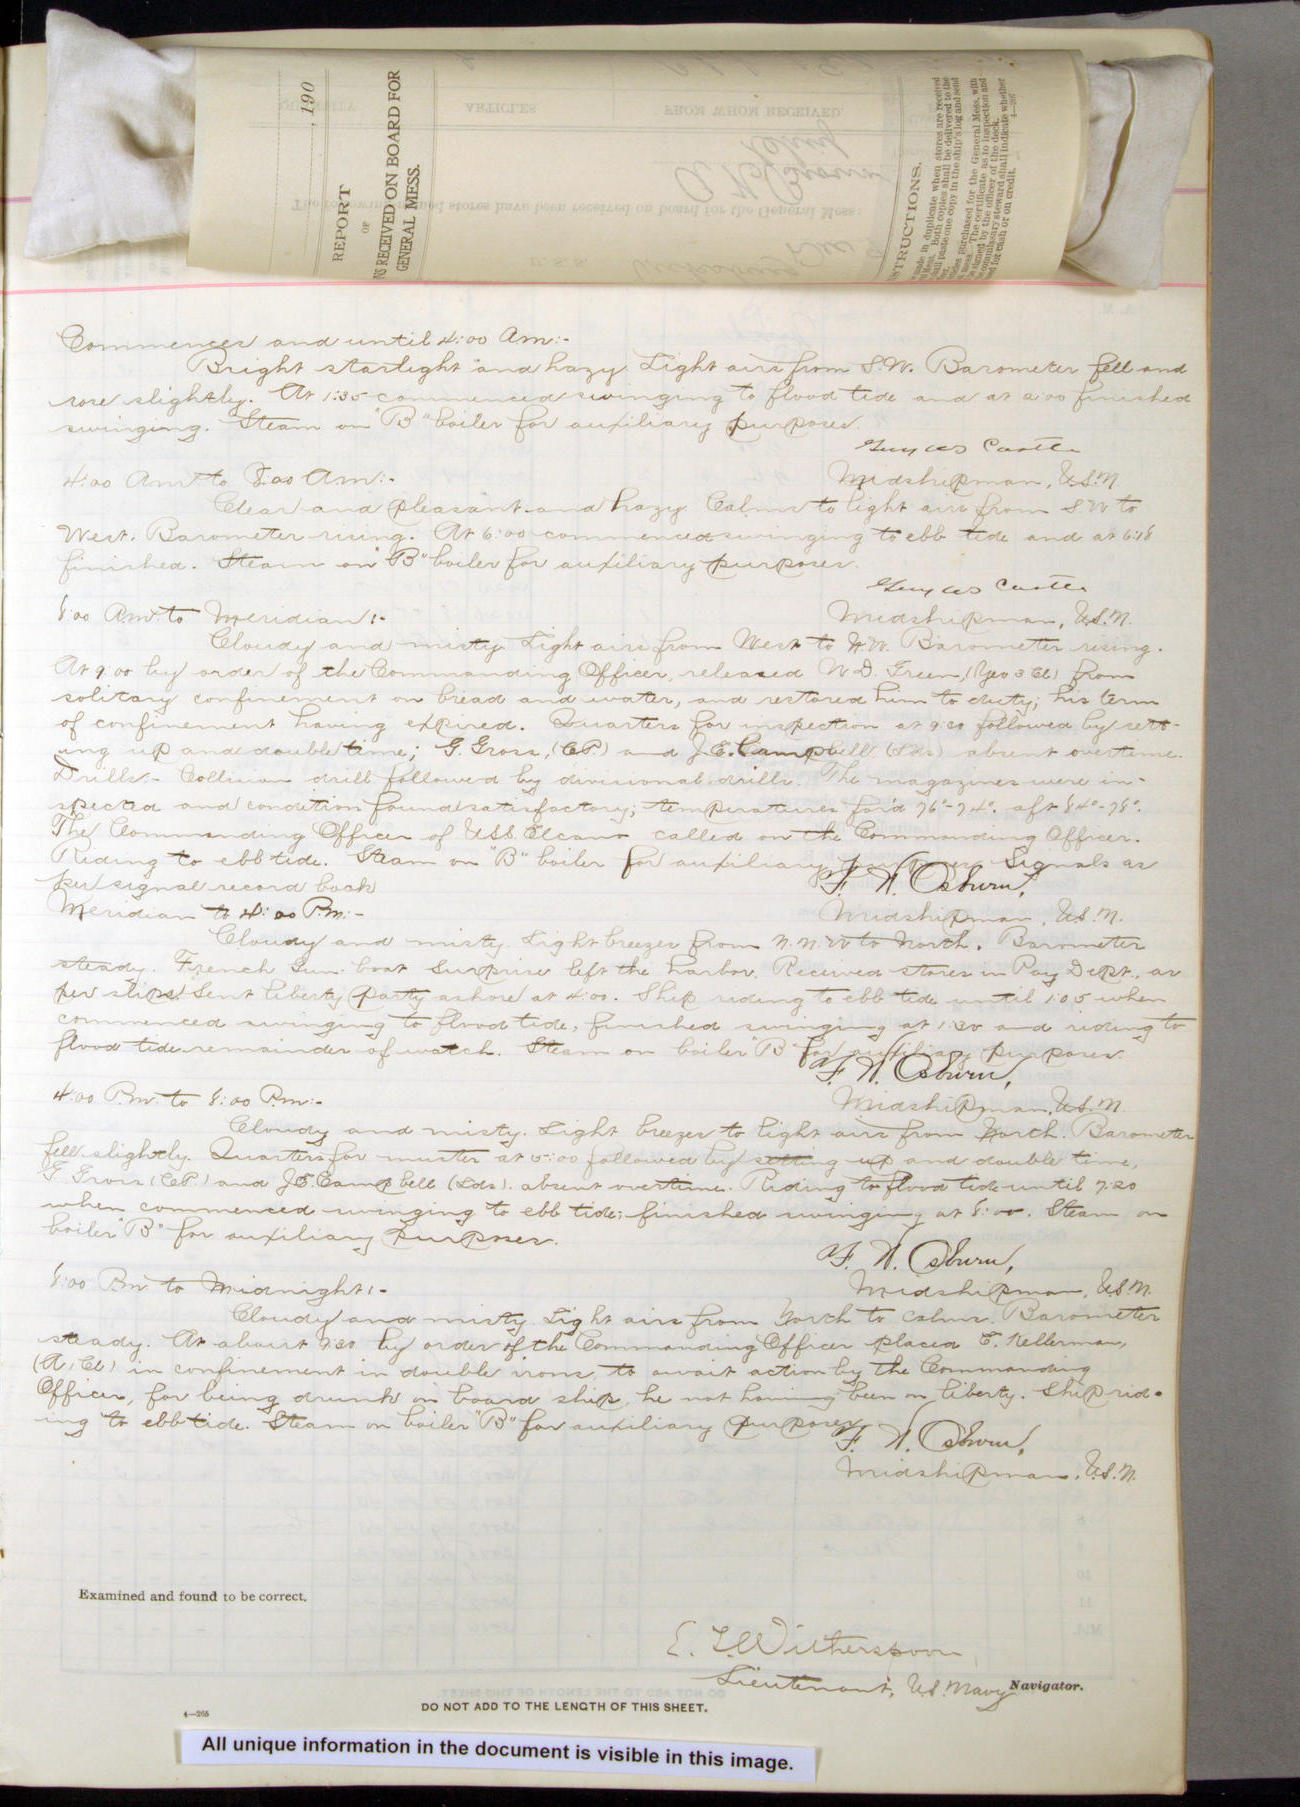 , 190
REPORT
OF
RECEIVED ON BOARD FOR
GENERAL MESS.
QUANTITY
ARTICLES
FROM WHOM RECEIVED.
stores have been received on board for the General Mess:
U. S. S.
made in duplicate when stores are received
Both copies shall be delivered to the
paste one copy in the ship's log and send
purchased for the General Mess, with
The certificate as to inspection and
signed by the officer of the deck.
commissary steward shall indicate whether
for cash or on credit.
Commences and until 4:00 Am:-
Bright starlight and hazy. Light airs from S.W. Barometer fell and
rose slightly. At 1:35 commenced swinging to flood tide and at 2:00 finished
swinging. Steam on "B" boiler for auxiliary purposes.
Midshipman, U.S.N.
4:00 Am to 8:00 Am:-
Clear and pleasant and hazy. Calms to light airs from SW to
West. Barometer rising. At 6:00 commenced swinging to ebb tide and at 6:18
finished. Steam on "B" boiler for auxiliary purposes.
Midshipman, U.S.N.
8:00 Am to Meridian:-
Cloudy and misty. Light airs from West to N.W. Barometer rising.
At 9:00 by order of the Commanding Officer, released W.D. Green, (Yeo 3 Cl) from
solitary confinement on bread and water, and restored him to duty; his term
of confinement having expired. Quarters for inspection at 9:20 followed by sett-
ing up and double time; G. Gross, (C.P.) and J.E. Campbell (Lds) absent overtime.
Drills - Collision drill followed by divisional drills. The magazines were in-
spected and condition found satisfactory; temperatures for'd 76°-74°. aft 84°-78°.
The Commanding Officer of U.S.S. Elcano called on the Commanding Officer.
Riding to ebb tide. Steam on "B" boiler for auxiliary purposes. Signals as
per signal record book
F. W. Osburn,
Midshipman, U.S.N.
Meridian to 4:00 P.m:-
Cloudy and misty. Light breezes from N.N.W. to North. Barometer
steady. French Gun boat Surprise left the harbor. Received stores in Pay Dept., as
per slips. Sent liberty party ashore at 4:00. Ship riding to ebb tide until 1:05 when
commenced swinging to flood tide, finished swinging at 1:30 and riding to
flood tide remainder of watch. Steam on boiler "B" for auxiliary purposes.
F. W. Osburn,
Midshipman, U.S.N.
4:00 P.m. to 8:00 P.m:-
Cloudy and misty. Light breezes to light airs from North. Barometer
fell slightly. Quarters for muster at 5:00 followed by setting up and double time,
G. Gross (C.P.) and J.E. Campbell (Lds). absent overtime. Riding to flood tide until 7:20
when commenced swinging to ebb tide; finished swinging at 8:00. Steam on
boiler "B" for auxiliary purposes.
F. W. Osburn,
Midshipman, U.S.N.
8:00 Pm to Midnight:-
Cloudy and misty. Light airs from North to calms. Barometer
steady. At about 9:30 by order of the Commanding Officer placed E. Kellerman,
in confinement in double irons, to await action by the Commanding
Officer, for being drunk on board ship, he not having been on liberty. Ship rid-
ing to ebb tide. Steam on boiler "B" for auxiliary purposes.
F. W. Osburn,
Midshipman, U.S.N.
Examined and found to be correct.
E. T. Witherspoon,
Lieutenant, U.S. Navy Navigator.
DO NOT ADD TO THE LENGTH OF THIS SHEET.
4—265
All unique information in the document is visible in this image.